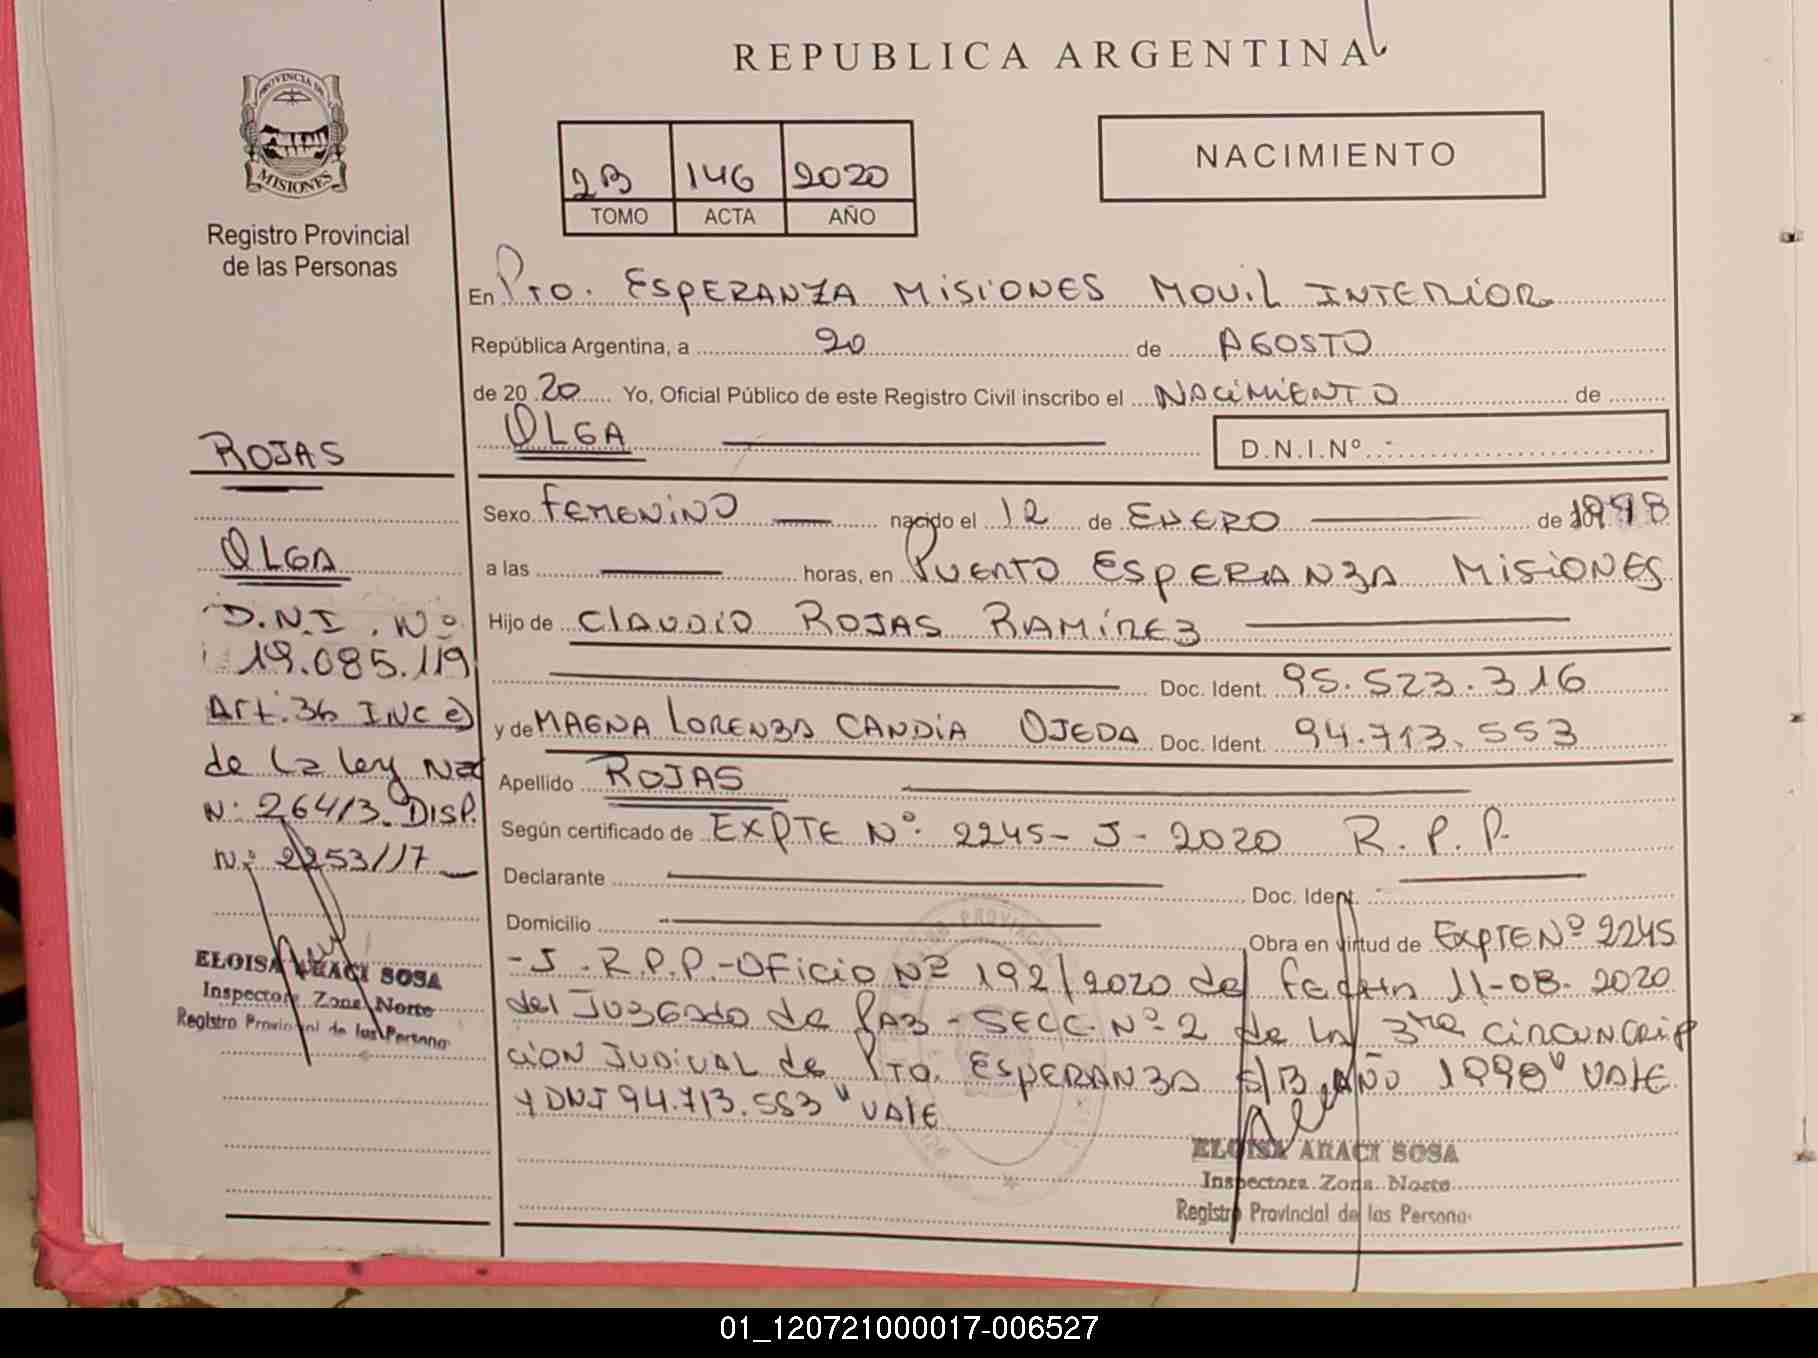 REPUBLICA ARGENTINA
PROVINCIA DE
MISIONES
Registro Provincial
de las Personas
2B 146 2020
TOMO ACTA AÑO
NACIMIENTO
En Pto. ESPERANZA MISIONES MOVIL INTERIOR
República Argentina, a 20 de AGOSTO
de 20 20 Yo, Oficial Público de este Registro Civil inscribo el NACIMIENTO de
OLGA D.N.I.Nº.:
Sexo FEMENINO nacido el 12 de ENERO de 1998
a las horas, en PUERTO ESPERANZA MISIONES
Hijo de CLAUDIO ROJAS RAMÍREZ
Doc. Ident. 95.523.316
y de MAGNA LORENZA CANDIA OJEDA Doc. Ident. 94.713.553
Apellido ROJAS
Según certificado de EXPTE Nº 2245-J-2020 R.P.P.
Declarante Doc. Ident.
Domicilio Obra en virtud de EXPTE Nº 2245
-J.R.P.P-OFICIO Nº 192/2020 de Fecha 11-08-2020
del JUZGADO de PAZ-SECC. Nº 2 de la 3ra CIRCUNCRIP
CION JUDICIAL de Pto. ESPERANZA S/B. AÑO 1998" VALE
Y DNI 94.713.553" VALE
ELOISA ARACI SOSA
Inspectora Zona Norte
Registro Provincial de las Persona
ROJAS
OLGA
D.N.I. Nº
19.085.119
Art. 36 INC e)
de la ley Nac
Nº 26413. DISP.
Nº 2253/17
ELOISA ARACI SOSA
Inspectora Zona Norte
Registro Provincial de las Persona
01_120721000017-006527